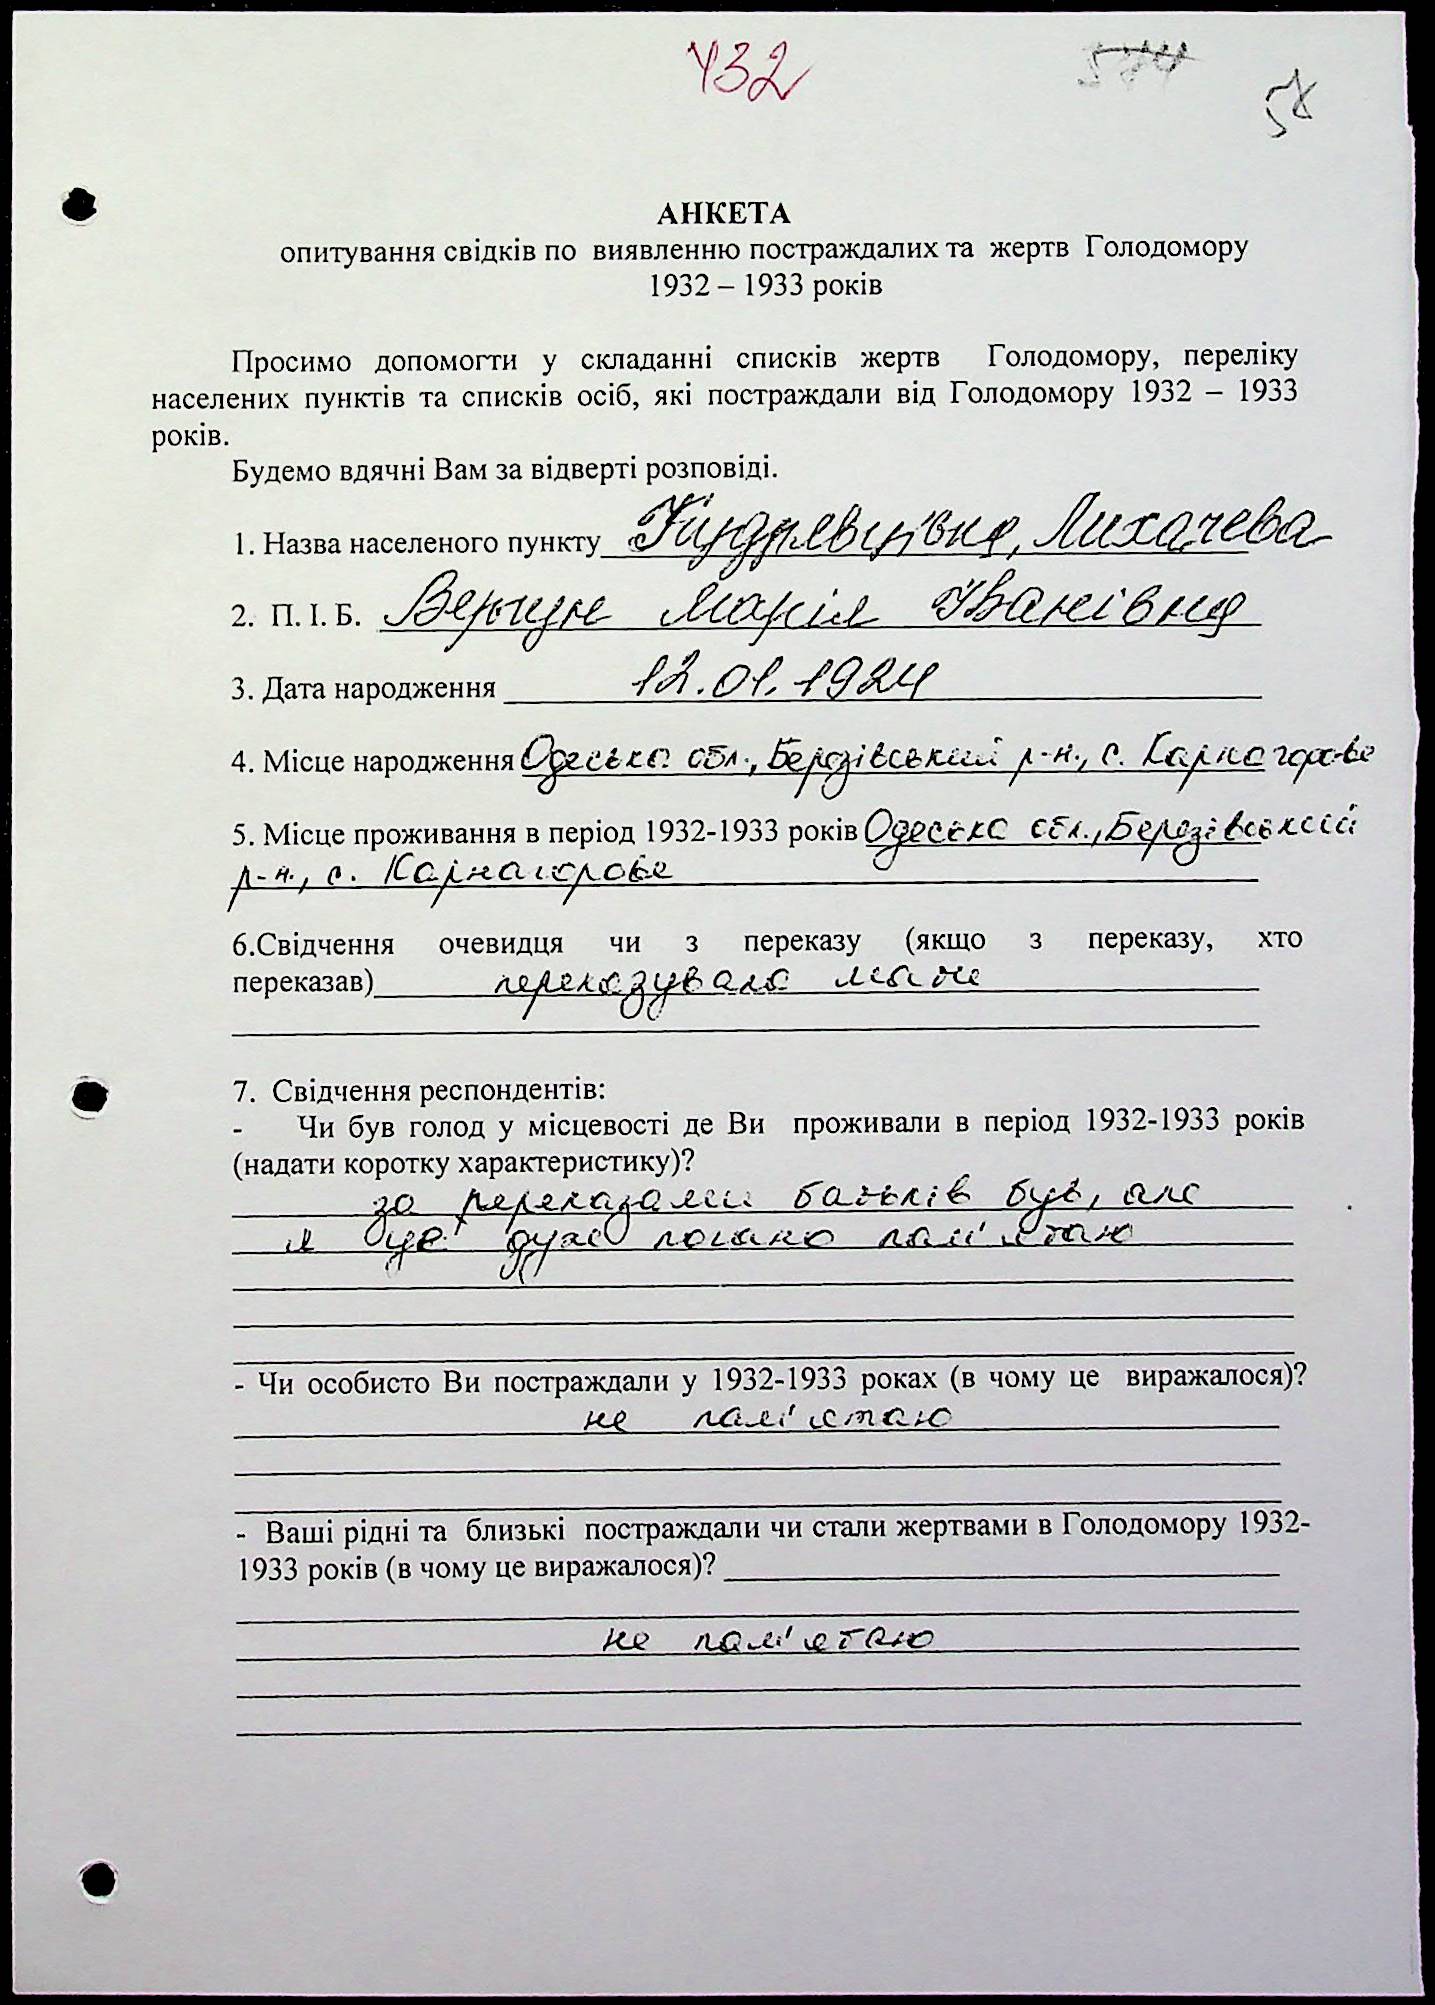 432
574
58
АНКЕТА
опитування свідків по виявленню постраждалих та жертв Голодомору
1932 – 1933 років
Просимо допомогти у складанні списків жертв Голодомору, переліку
населених пунктів та списків осіб, які постраждали від Голодомору 1932 – 1933
років.
Будемо вдячні Вам за відверті розповіді.
1. Назва населеного пункту Лихачева
2. П. І. Б. Вергун Марія Іванівна
3. Дата народження 12.01.1924
4. Місце народження Одеська обл., Березівський р-н., с.
5. Місце проживання в період 1932-1933 років Одеська обл., Березівський
р-н., с.
6.Свідчення очевидця чи з переказу (якщо з переказу, хто
переказав) переказувала мати
7. Свідчення респондентів:
- Чи був голод у місцевості де Ви проживали в період 1932-1933 років
(надати коротку характеристику)?
за переказами батьків був, але
я це дуже погано пам'ятаю
- Чи особисто Ви постраждали у 1932-1933 роках (в чому це виражалося)?
не пам'ятаю
- Ваші рідні та близькі постраждали чи стали жертвами в Голодомору 1932-
1933 років (в чому це виражалося)?
не пам'ятаю